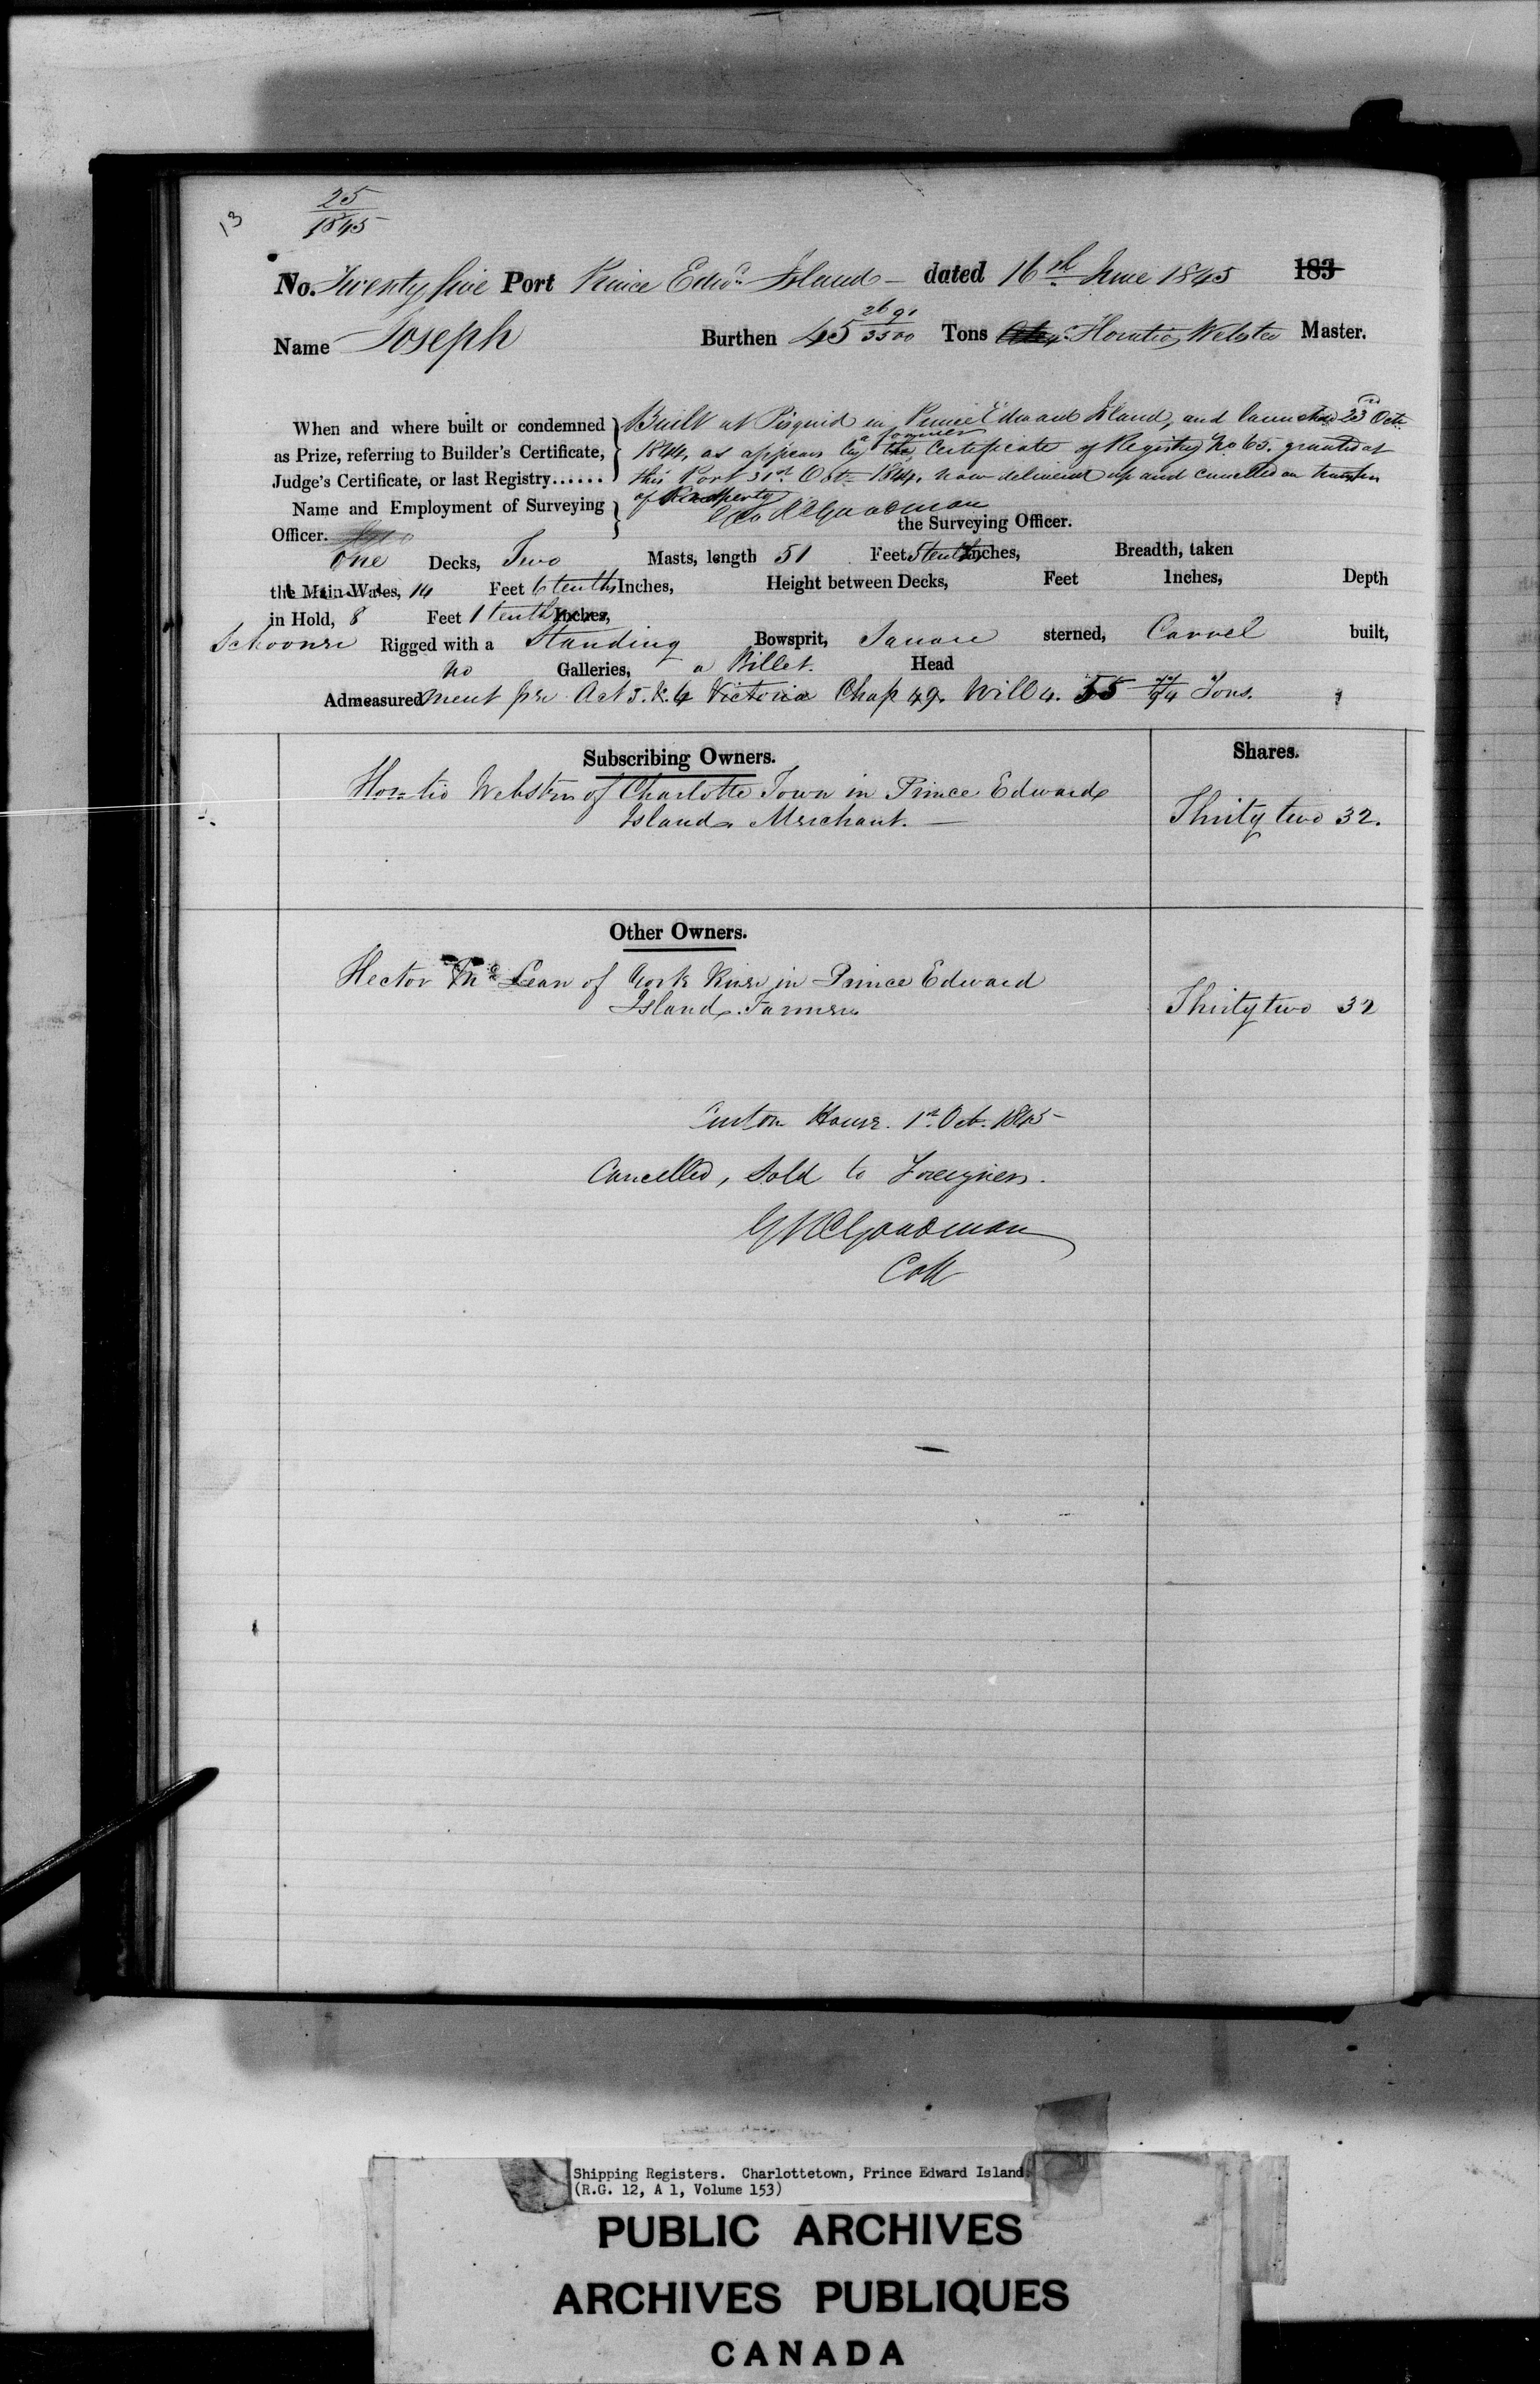 13
25
1845
No. Twenty five Port Prince Edwd Island - dated 16th June 1845 183
Name Joseph Burthen 45 2691/3500 Tons Horatio Webster Master.
When and where built or condemned as Prize, referring to Builder's Certificate, Judge's Certificate, or last Registry......
Built at Pisquid in Prince Edward Island, and launched 23rd Octr
1844, as appears by a former the Certificate of Registry No 65. granted at
this Port 31st Octr 1844, now delivered up and cancelled on transfer
of Property
Name and Employment of Surveying Officer.
Geo R Goodman the Surveying Officer.
One Decks, Two Masts, length 51 Feet 5 tenths Inches, Breadth, taken
the Main-Wales, 14 Feet 6 tenths Inches, Height between Decks, Feet Inches, Depth
in Hold, 8 Feet 1 tenth Inches,
Schooner Rigged with a Standing Bowsprit, Square sterned, Carvel built,
no Galleries, a Billet. Head
Admeasurement pr Act 5. & 6 Victoria Chap 49. Will 4. 55 /94 Tons.
Subscribing Owners.
Shares.
Horatio Webster of Charlotte Town in Prince Edward
Island, Merchant.
Thirty two 32.
Other Owners.
Hector McLean of York River in Prince Edward
Island. Farmer
Thirty two 32
Custom House. 1st Oct. 1845
Cancelled, Sold to Foreigners.
GRGoodman
Coll
Shipping Registers. Charlottetown, Prince Edward Island.
(R.G. 12, A 1, Volume 153)
PUBLIC ARCHIVES
ARCHIVES PUBLIQUES
CANADA